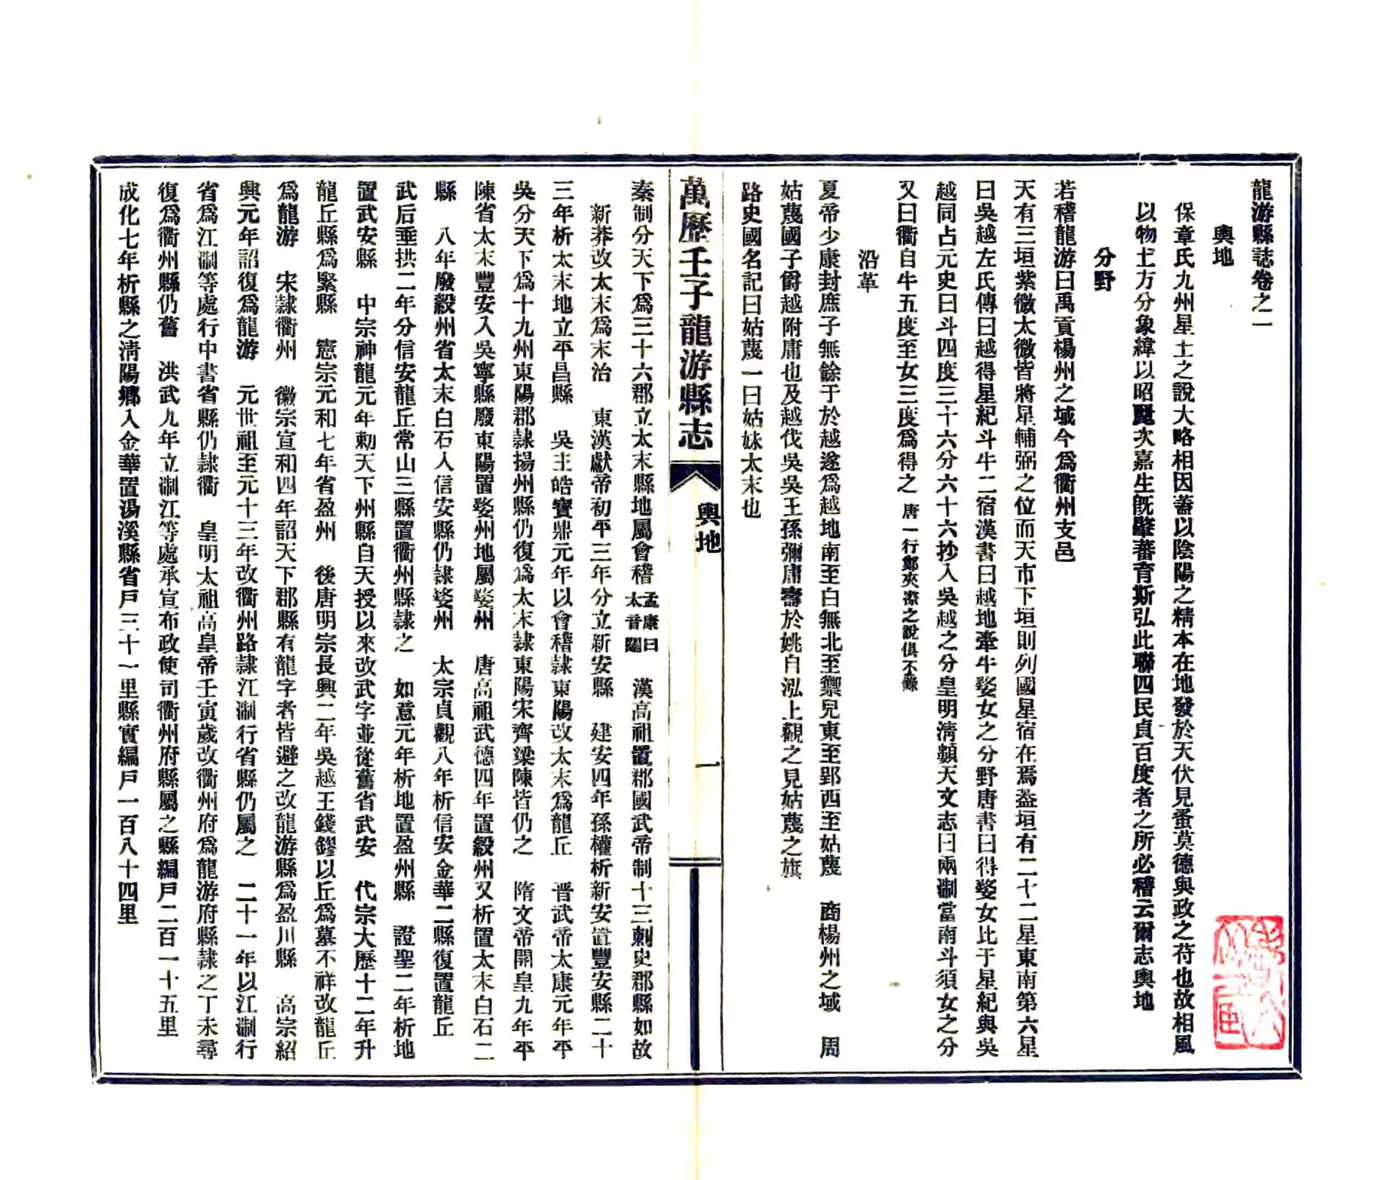 龍游縣誌卷之一
輿地
保章氏九州星土之說大略相因蓋以陰陽之精本在地發於天伏見蚤莫德與政之苻也故相風
以物土方分象緯以昭躔次嘉生旣肇蕃育斯弘此聯四民貞百度者之所必稽云爾志輿地
分野
若稽龍游曰禹貢楊州之域今爲衢州支邑
天有三垣紫微太微皆將星輔弼之位而天市下垣則列國星宿在焉葢垣有二十二星東南第六星
曰吳越左氏傳曰越得星紀斗牛二宿漢書曰越地牽牛婺女之分野唐書曰得婺女比于星紀與吳
越同占元史曰斗四度三十六分六十六抄入吳越之分皇明淸類天文志曰兩浙當南斗須女之分
又曰衢自牛五度至女三度爲得之 唐一行鄭夾漈之說俱不錄
沿革
夏帝少康封庶子無餘于於越遂爲越地南至白無北至禦兒東至鄞西至姑蔑 商楊州之域 周
姑蔑國子爵越附庸也及越伐吳吳王孫彌庸壽於姚自泓上觀之見姑蔑之旗
路史國名記曰姑蔑一曰姑妹太末也
萬歷壬子龍游縣志
輿地
一
秦制分天下爲三十六郡立太末縣地屬會稽 孟康曰太音闥 漢高祖置郡國武帝制十三刺史郡縣如故
新莽改太末爲末治 東漢獻帝初平三年分立新安縣 建安四年孫權析新安置豐安縣二十
三年析太末地立平昌縣 吳主皓寶鼎元年以會稽隷東陽改太末爲龍丘 晋武帝太康元年平
吳分天下爲十九州東陽郡隷揚州縣仍復爲太末隷東陽宋齊梁陳皆仍之 隋文帝開皇九年平
陳省太末豐安入吳寧縣廢東陽置婺州地屬婺州 唐高祖武德四年置縠州又析置太末白石二
縣 八年廢縠州省太末白石入信安縣仍隷婺州 太宗貞觀八年析信安金華二縣復置龍丘
武后垂拱二年分信安龍丘常山三縣置衢州縣隷之 如意元年析地置盈州縣 證聖二年析地
置武安縣 中宗神龍元年勅天下州縣自天授以來改武字並從舊省武安 代宗大歷十二年升
龍丘縣爲緊縣 憲宗元和七年省盈州 後唐明宗長興二年吳越王錢鏐以丘爲墓不祥改龍丘
爲龍游 宋隷衢州 徽宗宣和四年詔天下郡縣有龍字者皆避之改龍游縣爲盈川縣 高宗紹
興元年詔復爲龍游 元世祖至元十三年改衢州路隷江浙行省縣仍屬之 二十一年以江浙行
省爲江浙等處行中書省縣仍隷衢 皇明太祖高皇帝壬寅歲改衢州府爲龍游府縣隷之丁未尋
復爲衢州縣仍舊 洪武九年立浙江等處承宣布政使司衢州府縣屬之縣編戶二百一十五里
成化七年析縣之淸陽鄉入金華置湯溪縣省戶三十一里縣實編戶一百八十四里